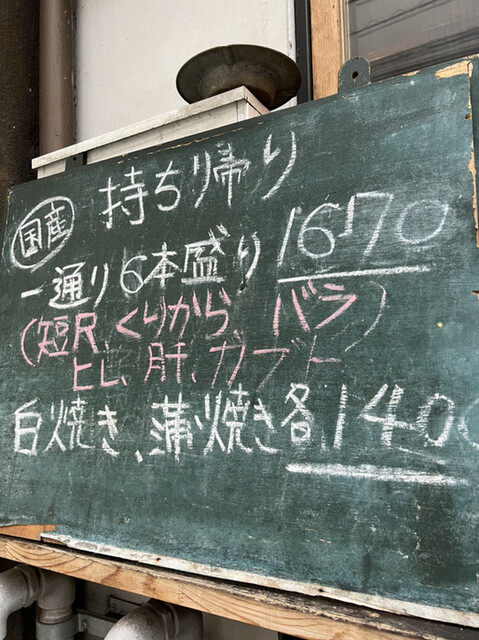 持ち帰り
国産
一通り6本盛り 1670
(短尺、くりから、バラ)
ヒレ、肝、カブト
白焼き、蒲焼き各1400